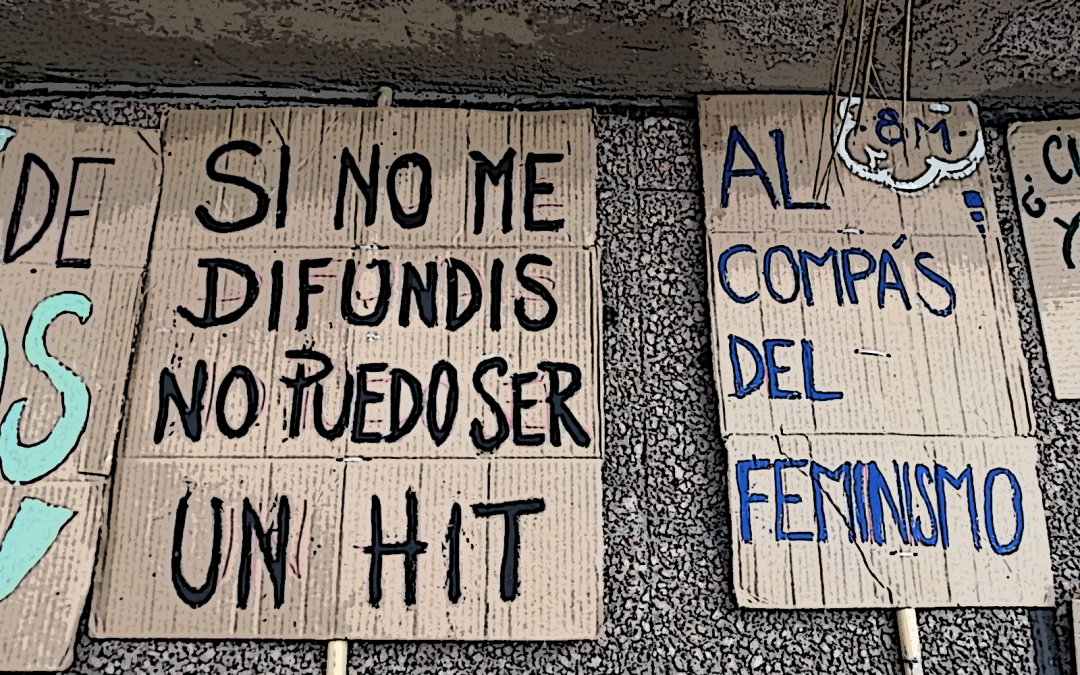 DE
OS
SI NO ME
DIFUNDIS
NO PUEDO SER
UN HIT
8M
AL
COMPÁS
DEL
FEMINISMO
¿CU
Y